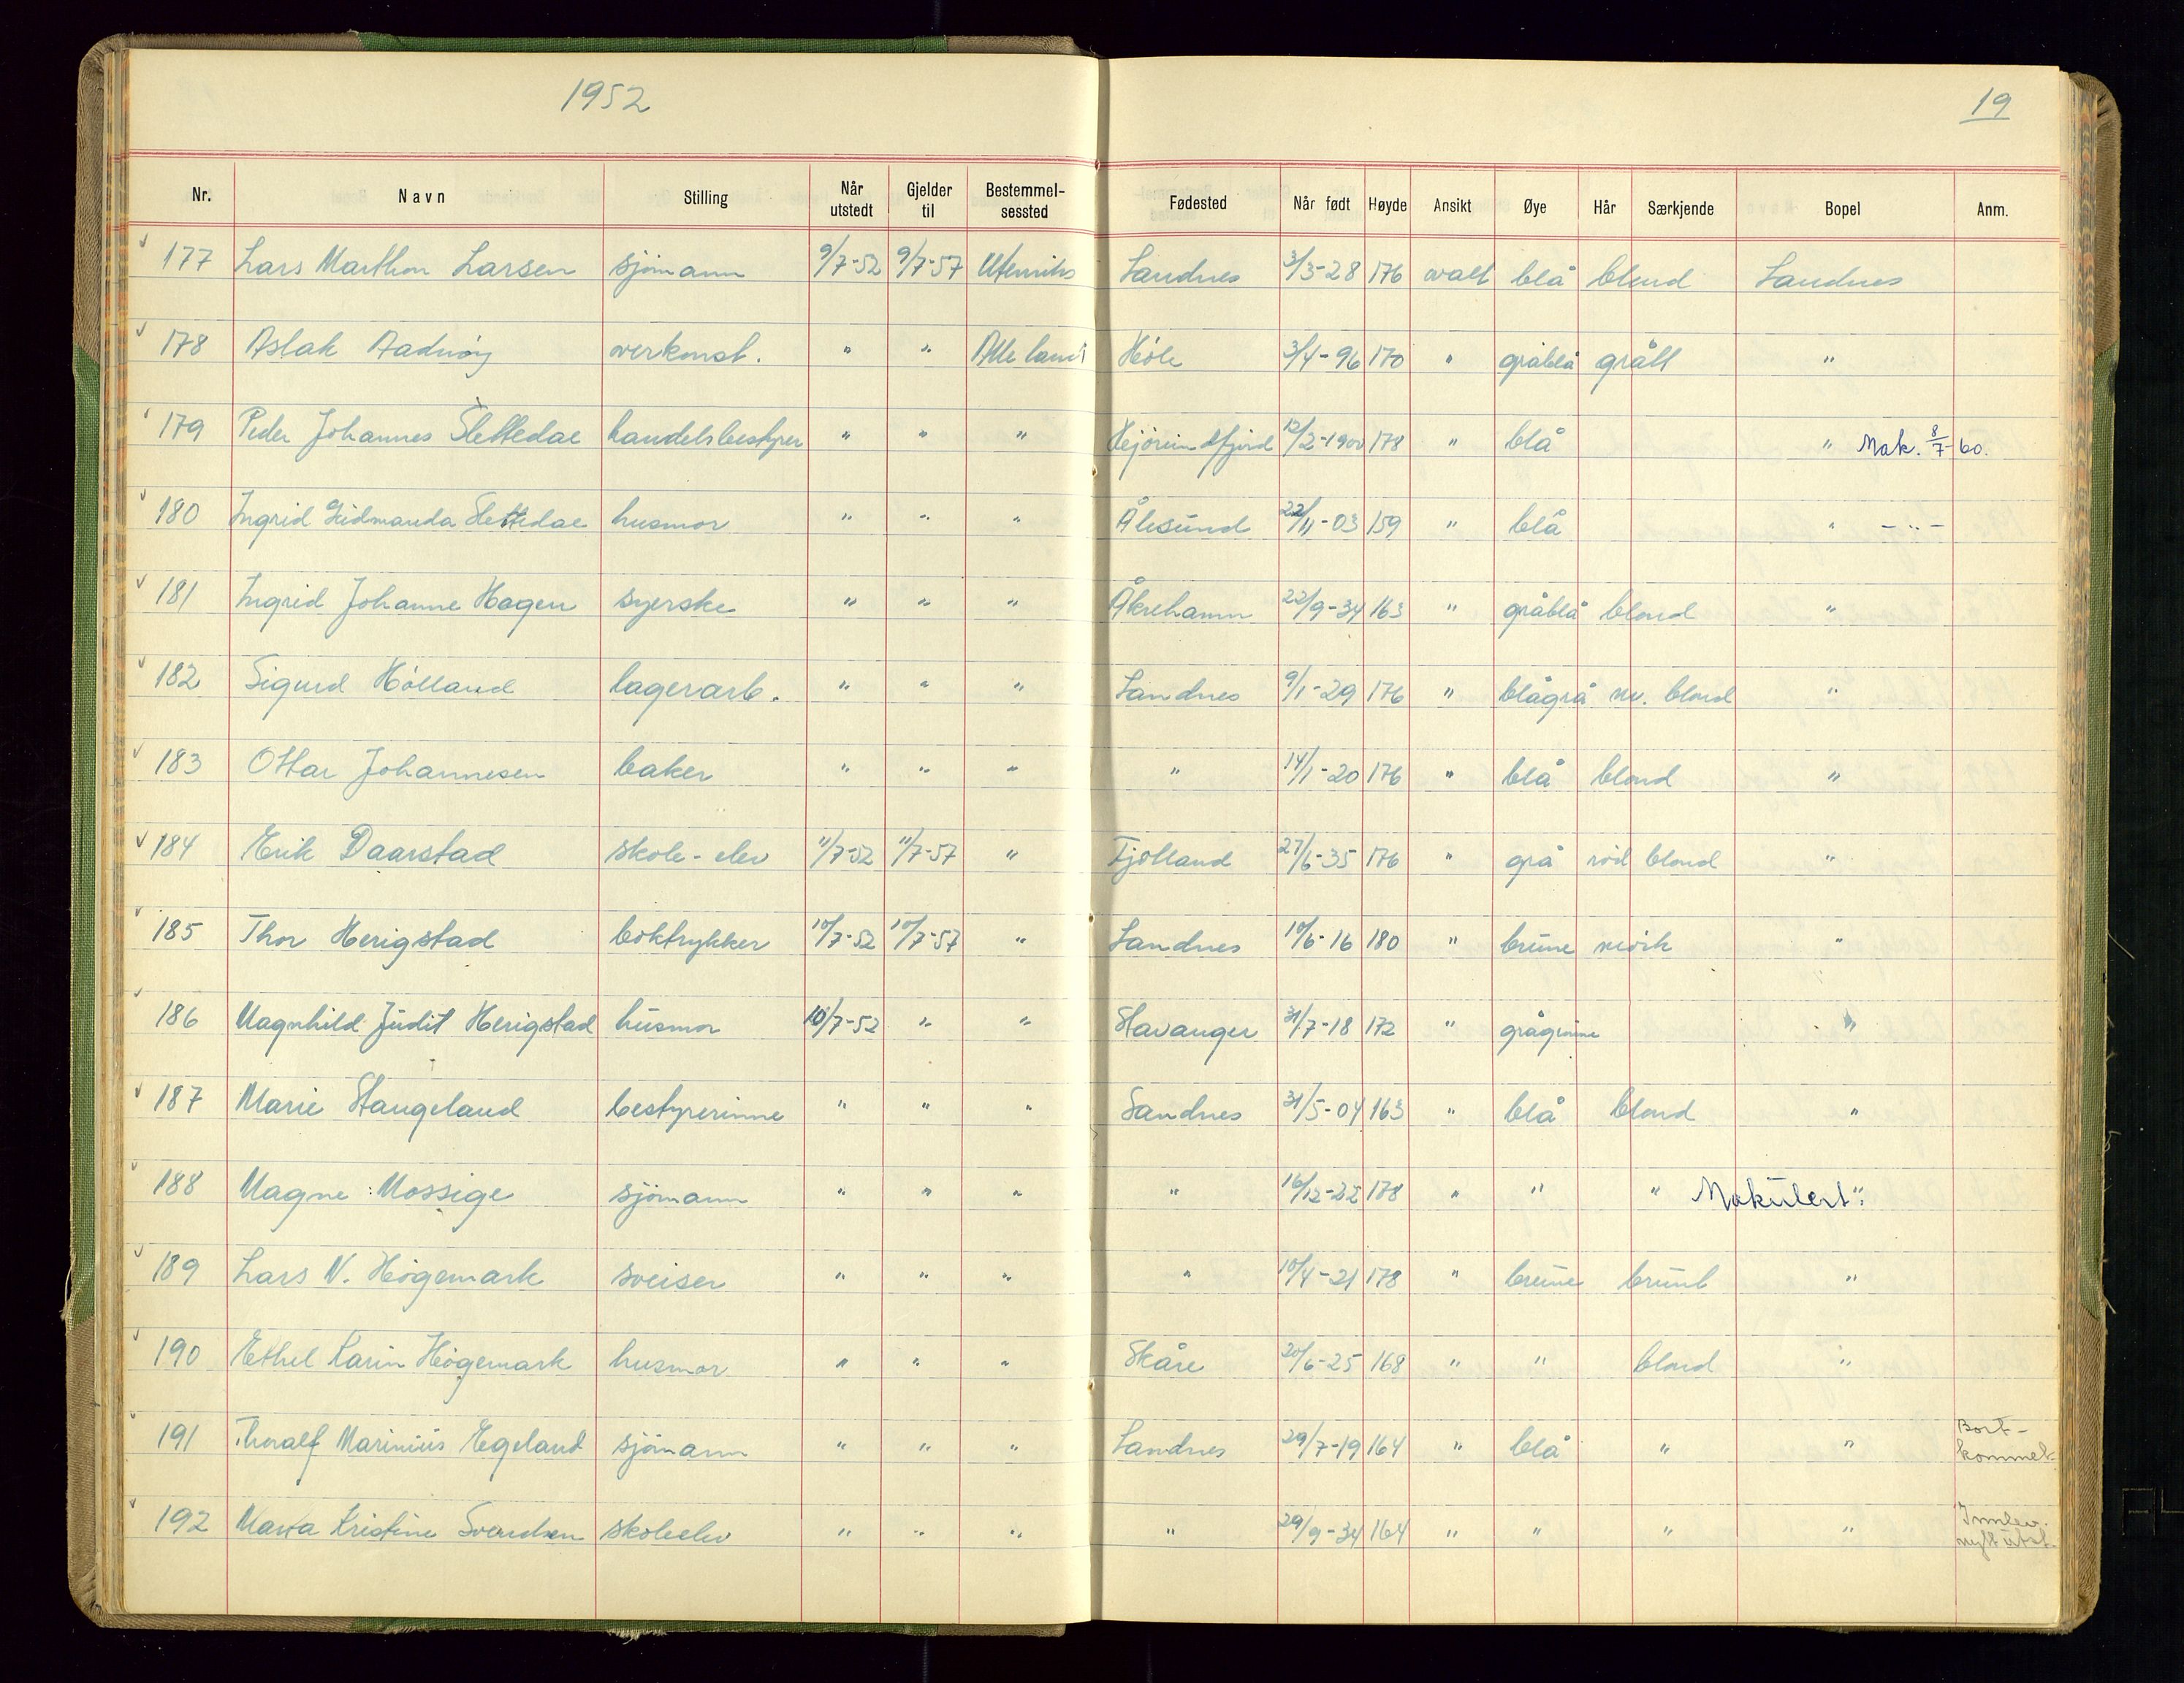 1952
19
Nr. Navn Stilling Når utstedt Gjelder til Bestemmelsessted Fødested Når født Høyde Ansikt Øye Hår Særkjende Bopel Anm.
177 Lars Marthon Larsen sjømann 9/7-52 9/7-57 Utenriks Sandnes 3/3-28 176 ovalt blå blond Sandnes
178 Aslak Aadnøy verkonst. " " Alle land Høle 3/4-96 170 " gråblå grått "
179 Peder Johannes Slettedal handelsbestyrer " " " 12/2-1900 178 " blå " Mak. 8/7-60.
180 Ingrid Slettedal husmor " " " Ålesund 22/11-03 159 " blå " -"-
181 Ingrid Johanne Hagen syerske " " " Åkrehamn 22/9-34 163 " gråblå blond "
182 Sigurd Hölland lagerarb. " " " Sandnes 9/1-29 176 " blågrå m. blond "
183 Ottar Johannesen baker " " " " 14/1-20 176 " blå blond "
184 Erik Daarstad skole-elev 11/7-52 11/7-57 " Fjølland 27/6-35 176 " grå rød blond "
185 Thor Herigstad boktrykker 10/7-52 10/7-57 " Sandnes 10/6-16 180 " brune mörk "
186 Magnhild Judit Herigstad husmor 10/7-52 " " Stavanger 31/7-18 172 " grågrønne "
187 Marie Stangeland bestyrerinne " " " Sandnes 31/5-04 163 " blå blond "
188 Magne Mossige sjömann " " " " 16/12-22 178 " " " Makulert ":
189 Lars N. Högemark sveiser " " " " 10/4-21 178 " brune brunt "
190 Ethel Karin Högemark husmor " " " Skåre 20/6-25 168 " " blond "
191 Thoralf Marinius Egeland sjömann " " " Sandnes 29/7-19 164 " blå " " Bort-
kommet.
192 Marta Kristine Svendsen skoleelev " " " " 29/9-34 164 " " " " Innlev.
nytt utst.